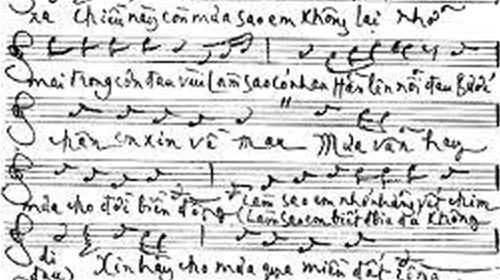 xa Chiều này còn mưa sao em không lại nhỡ
mai trong cơn đau vùi Làm sao có nhau Hằn lên nỗi đau Bước
chân em xin về mau Mưa vẫn hay
mưa cho đời biển động Làm sao em nhớ những vết chim
(Làm sao em biết bia đá không
di Xin hãy cho mưa qua miền đất rộng
đau)